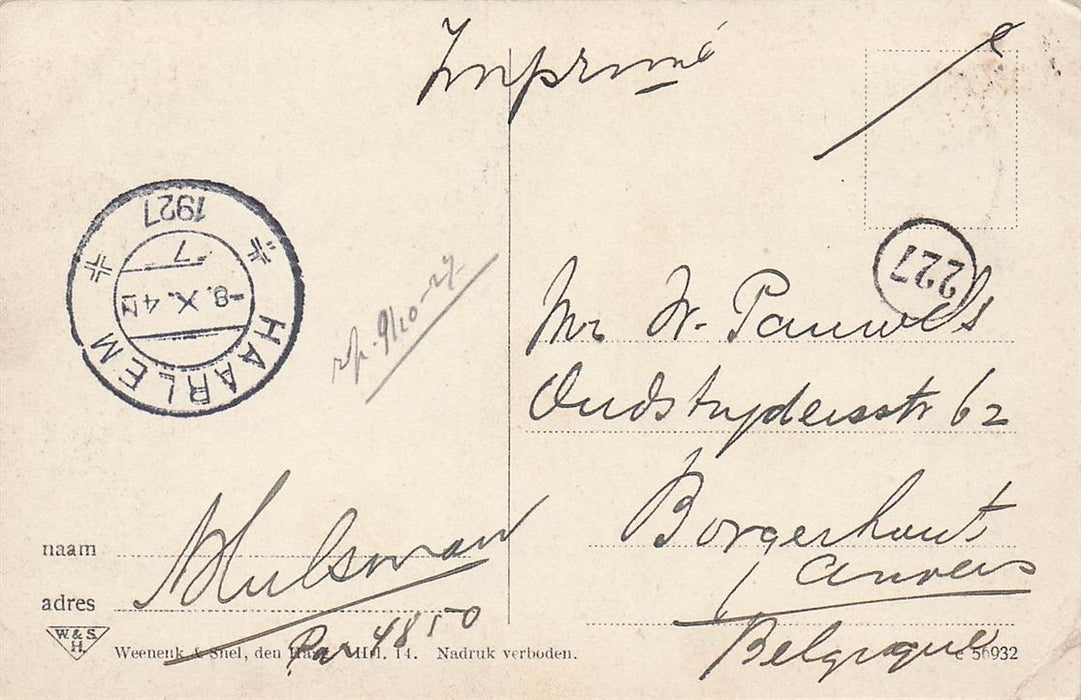 Imprimé
1927
7
-8.X.4
HAARLEM
227
rép. 9/10-27-
Mr W. Pauwels
Oudstrydersstr 62
Borgerhout
Anvers
Belgique
naam Hulsman
adres
W. & S.
H.
Weenenk & Snel, den Haag. Hfl. 14. Nadruk verboden.
C 56932